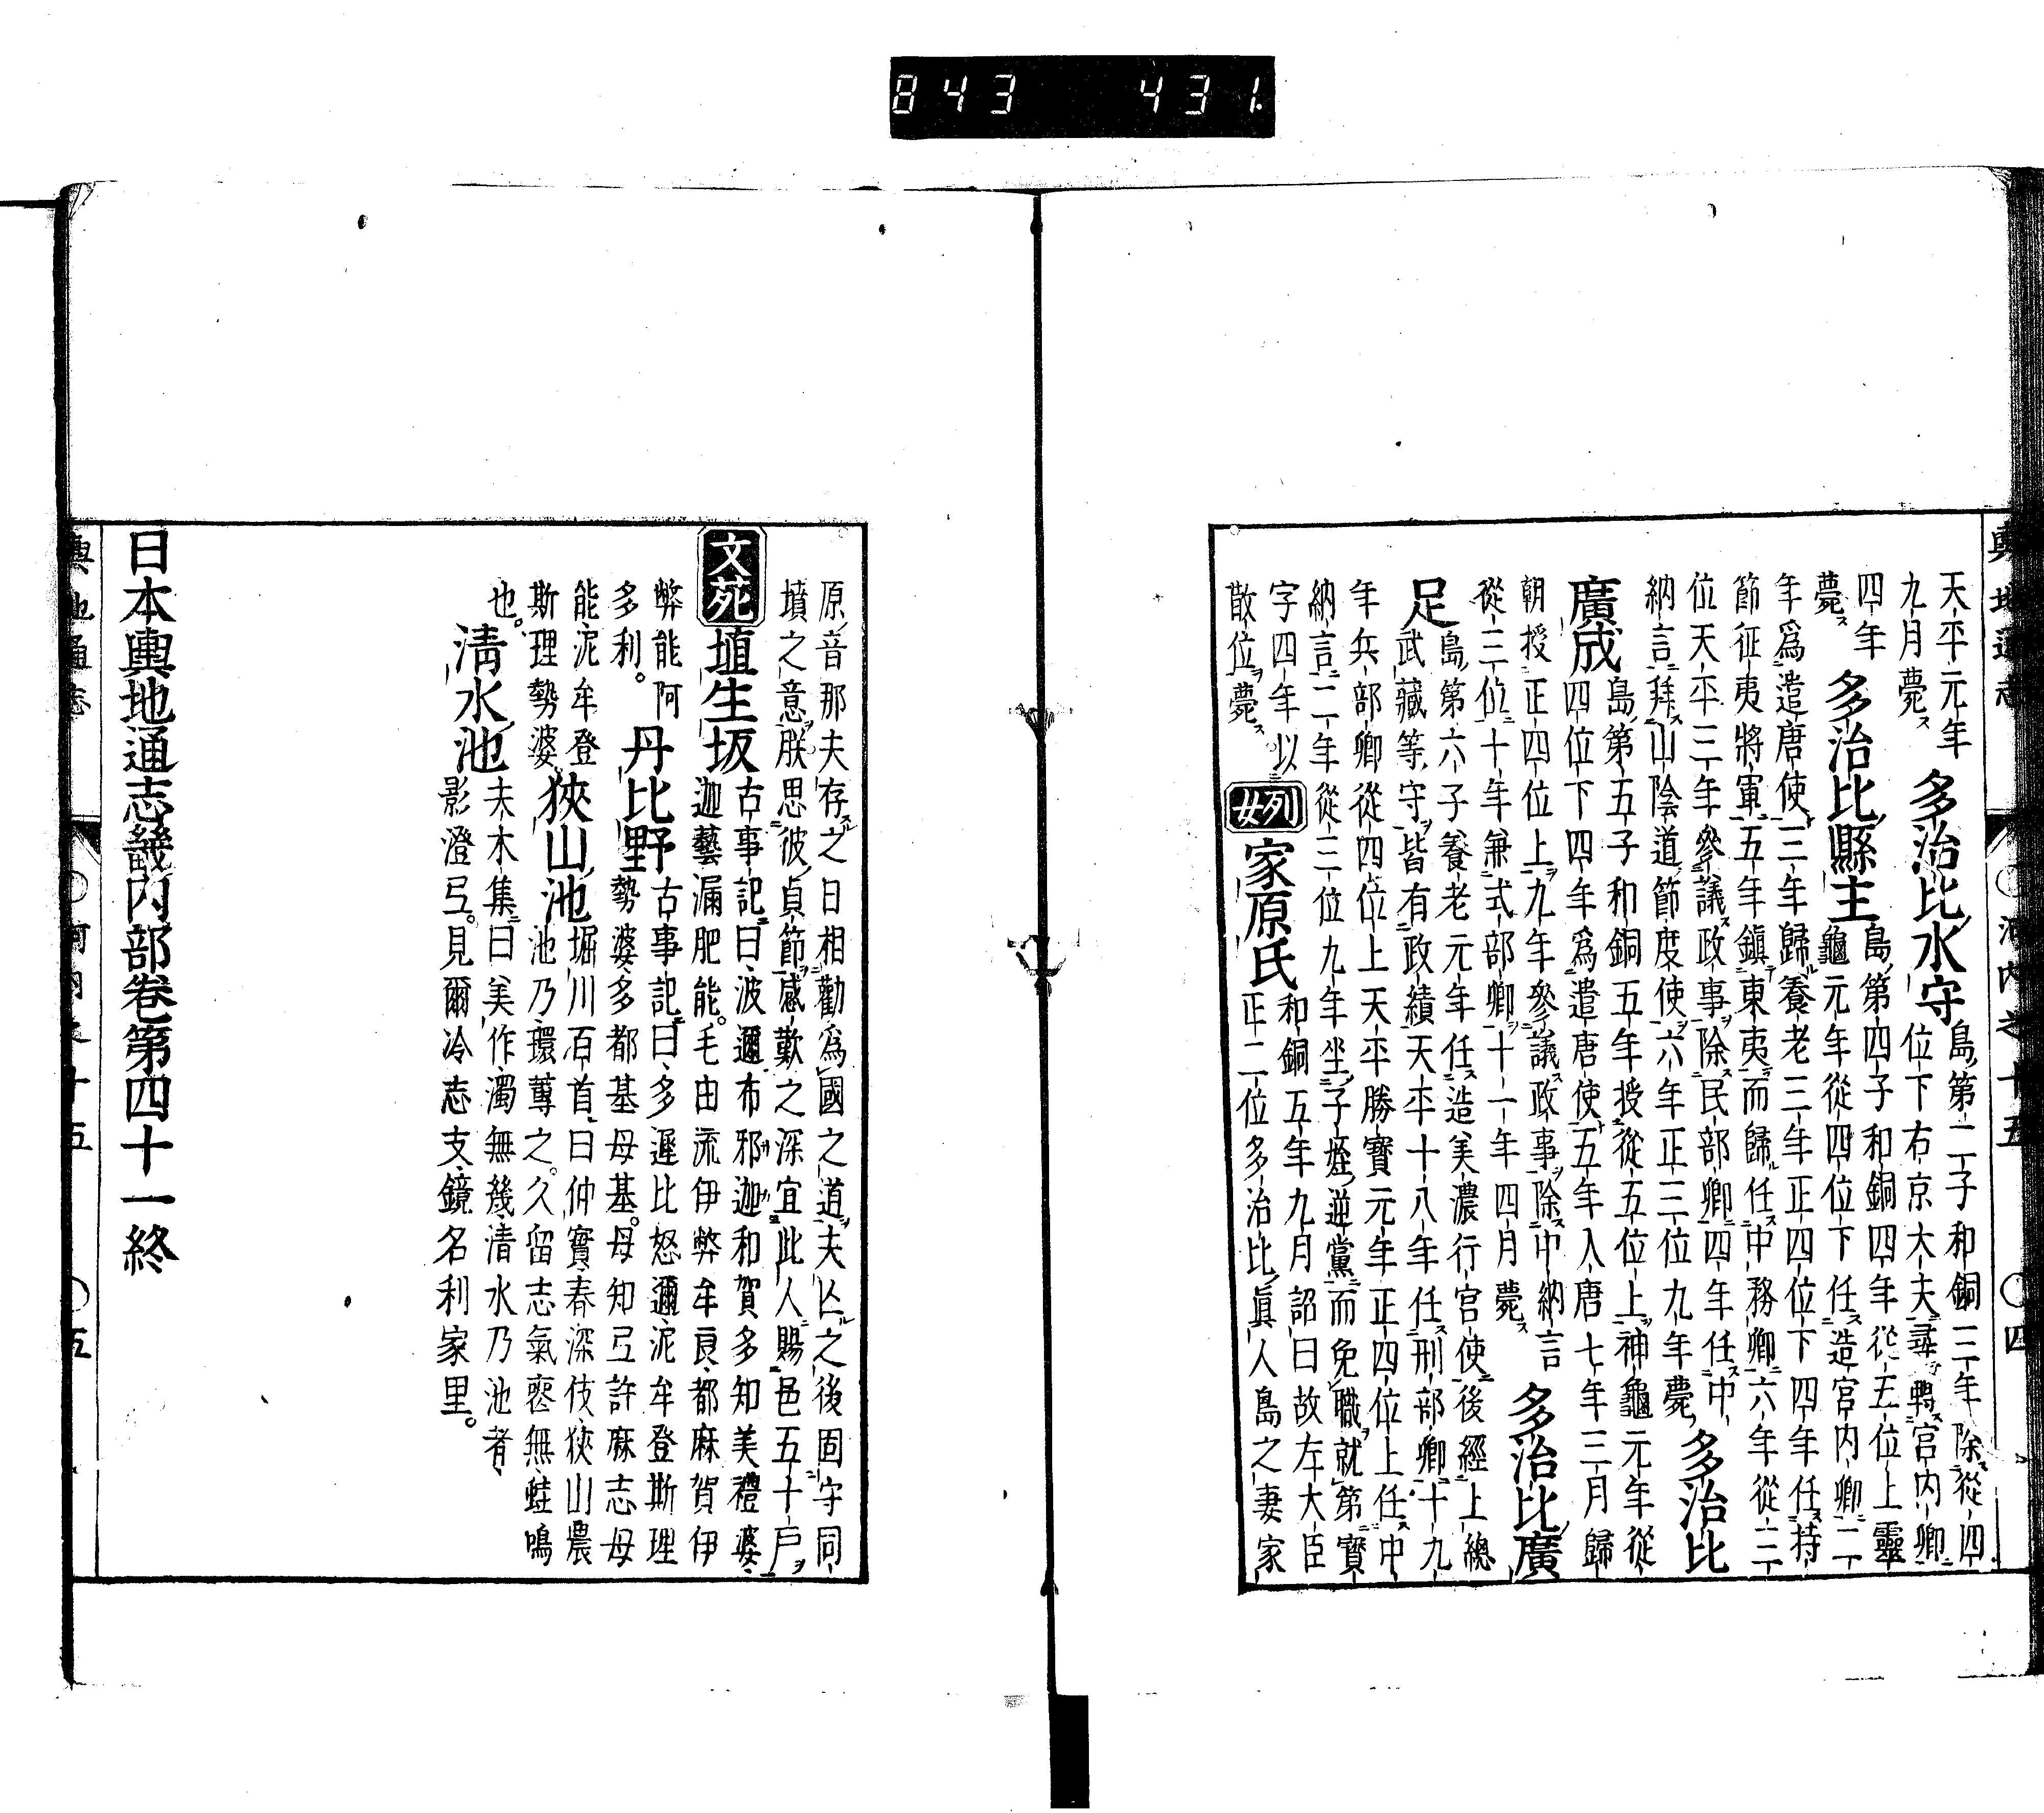 843 431.
輿地通志 〇河内之十五 〇四
天平元年
九月薨
多治比水守
島第二子和銅三年除從四
位下右京大夫尋轉宮内卿
四年
薨
多治比縣主
島第四子和銅四年從五位上靈
龜元年從四位下任造宮内卿二
年爲遣唐使三年歸養老三年正四位下四年任持
節征夷將軍五年鎭東夷而歸任中務卿六年從三
位天平三年參議政事除民部卿四年任中
納言拜山陰道節度使六年正三位九年薨
多治比
廣成
島第五子和銅五年授從五位上神龜元年從
四位下四年爲遣唐使五年入唐七年三月歸
朝授正四位上九年參議政事除中納言
從三位十年兼式部卿十一年四月薨
多治比廣
足
島第六子養老元年任造美濃行宮使後經上總
武藏等守皆有政績天平十八年任刑部卿十九
年兵部卿從四位上天平勝寶元年正四位上任中
納言二年從三位九年坐子姪逆黨而免職就第寶
字四年以
散位薨
列女
家原氏
和銅五年九月詔曰故左大臣
正二位多治比眞人島之妻家
原音那夫存之日相勸爲國之道夫亡之後固守同
墳之意朕思彼貞節感歎之深宜此人賜邑五十戸
文苑
埴生坂
古事記曰波邇布邪迦和賀多知美禮婆
迦藝漏肥能毛由流伊弊牟良都麻賀伊
弊能阿
多利。
丹比野
古事記曰多遲比怒邇泥牟登斯理
勢婆多都基母母知弖許麻志母
能泥牟登
斯理勢婆
狹山池
堀川百首曰仲實春深伎狹山農
池乃環蓴之久留志氣无無蛙鳴
也。
清水池
夫木集曰美作濁無幾清水乃池者
影澄弖見爾冷志支鏡名利家里。
日本輿地通志畿内部卷第四十一終
輿地通志 〇河内之十五 〇五